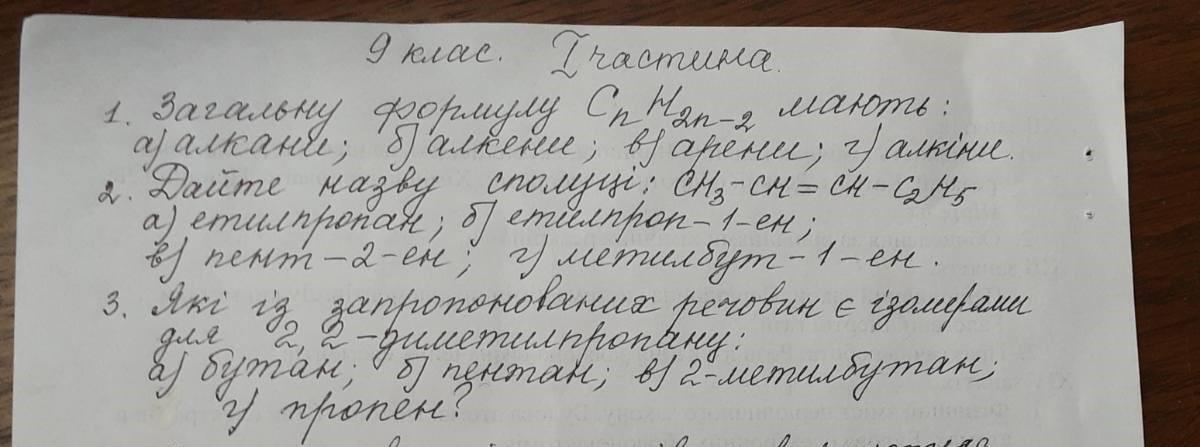 9 клас. I частина.
1. Загальну формулу CnH2n-2 мають:
а) алкани; б) алкени; в) арени; г) алкіни.
2. Дайте назву сполуці: CH3-CH=CH-C2H5
а) етилпропан; б) етилпроп-1-ен;
в) пент-2-ен; г) метилбут-1-ен.
3. Які із запропонованих речовин є ізомерами
для 2,2-диметилпропану:
а) бутан; б) пентан; в) 2-метилбутан;
г) пропен?